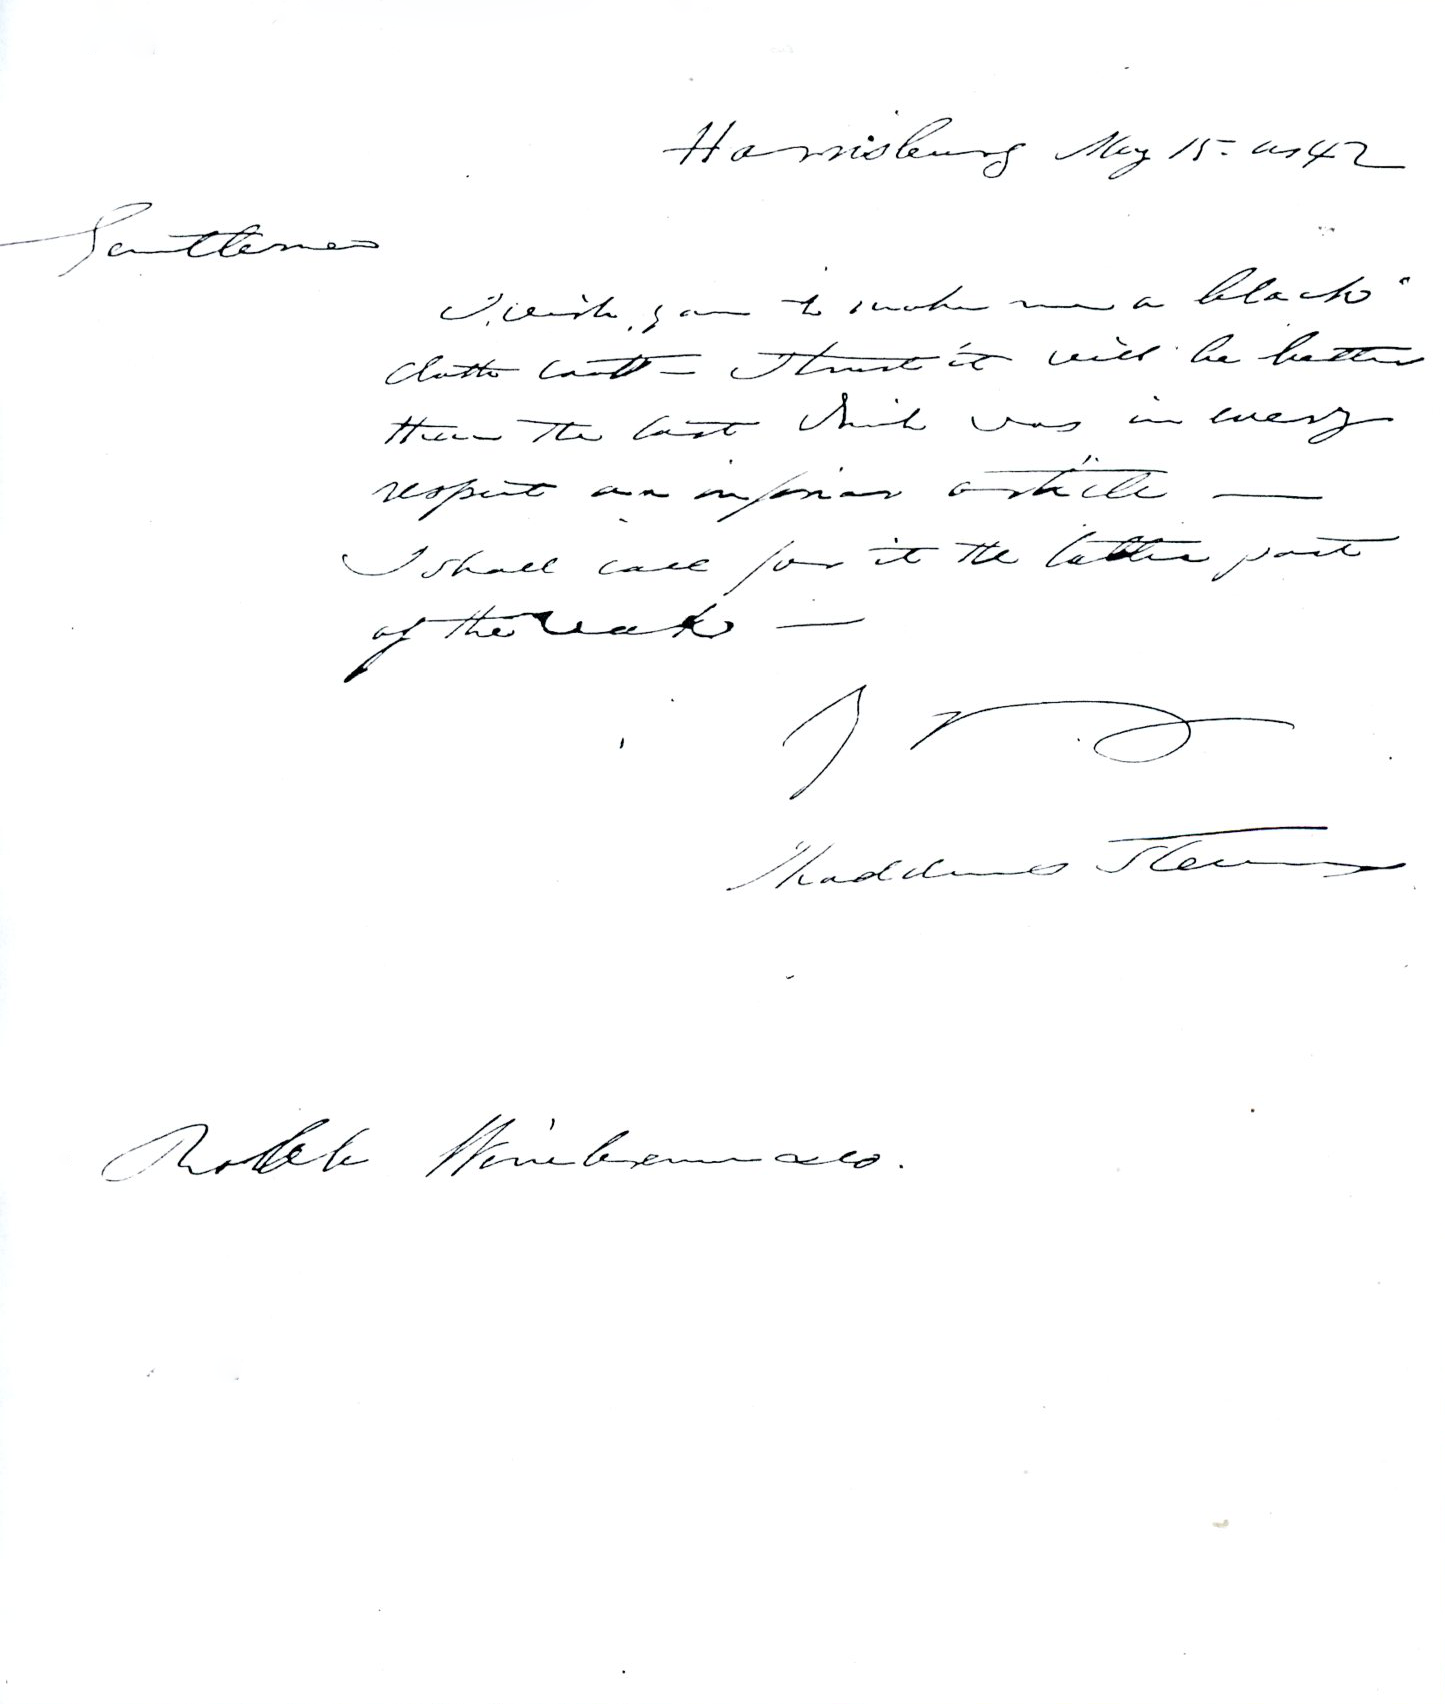 Harrisburg May 15- 1842
Gentlemen
I wish you to make me a black
cloth coat = I trust it will be better
than the last which was in every
respect an inferior article —
I shall call for it the latter part
of the week —
Thaddeus Stevens
& Co.